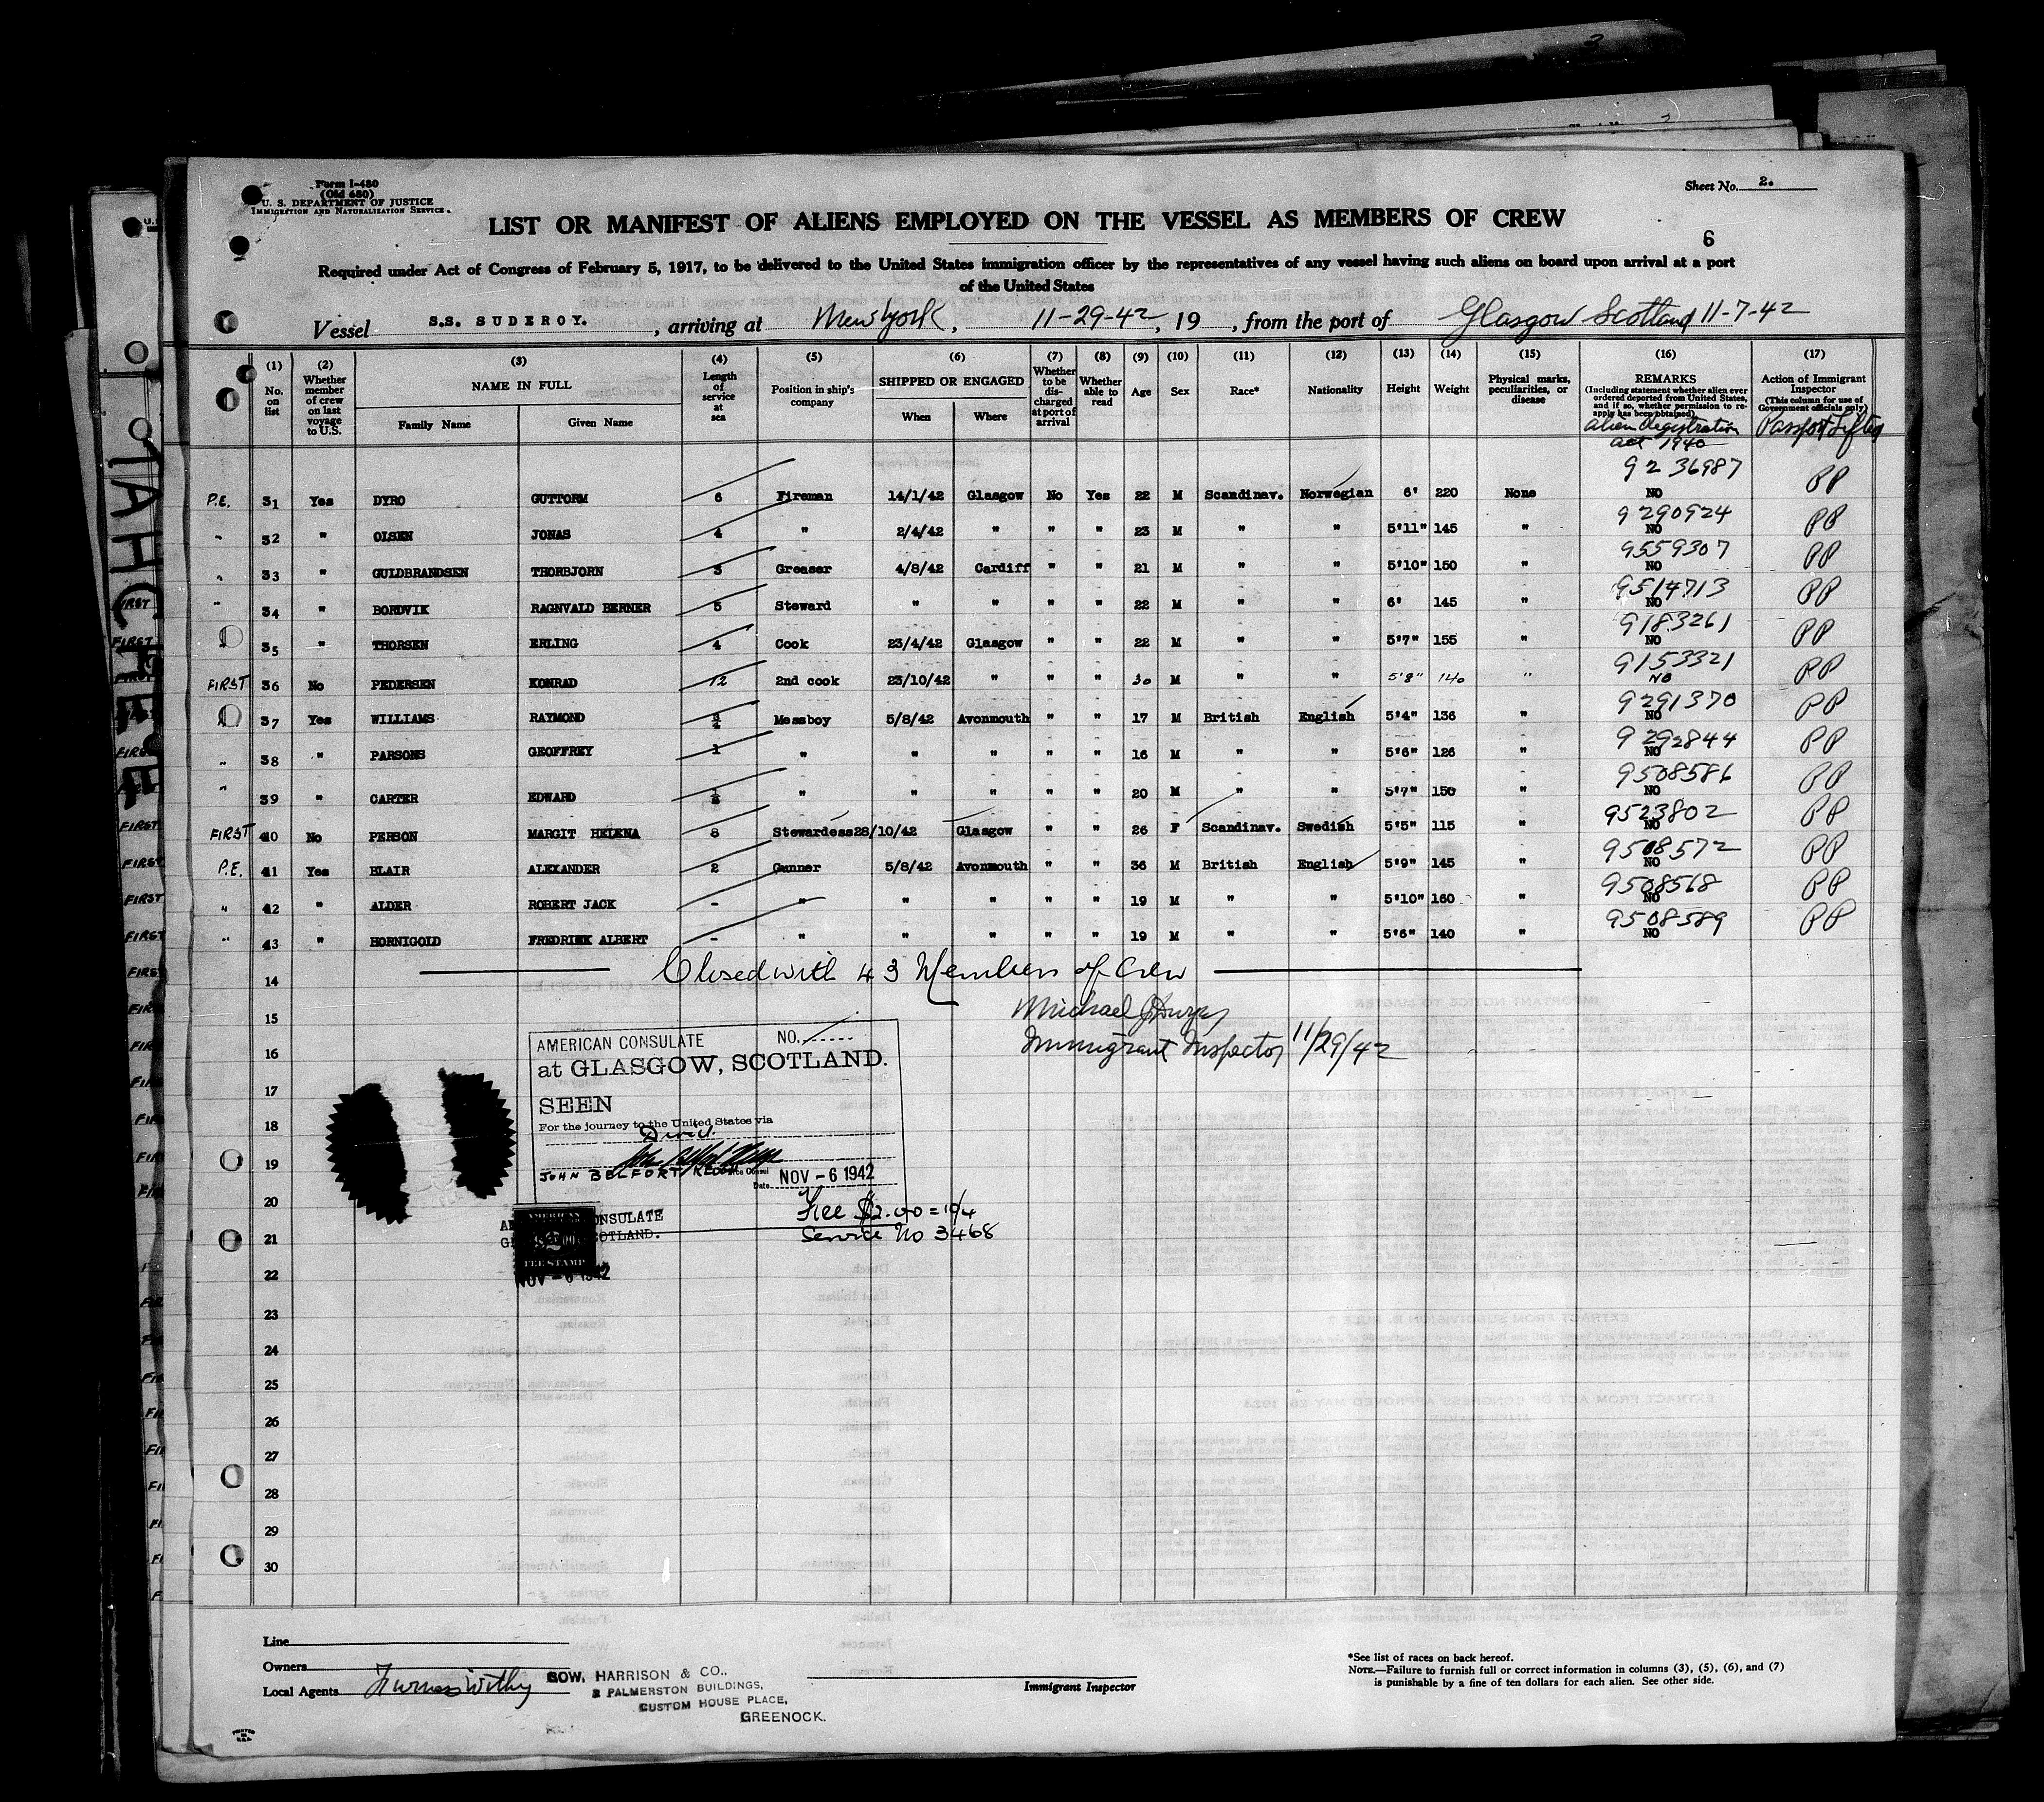 Form I-480
(Old 680)
U. S. DEPARTMENT OF JUSTICE
IMMIGRATION AND NATURALIZATION SERVICE.
Sheet No. 2.
LIST OR MANIFEST OF ALIENS EMPLOYED ON THE VESSEL AS MEMBERS OF CREW
6
Required under Act of Congress of February 5, 1917, to be delivered to the United States immigration officer by the representatives of any vessel having such aliens on board upon arrival at a port
of the United States
Vessel S.S. SUDEROY. , arriving at New York , 11-29-42 , 19 , from the port of Glasgow Scotland 11-7-42
(1) No. on list
(2) Whether member of crew on last voyage to U.S.
(3) NAME IN FULL
Family Name Given Name
(4) Length of service at sea
(5) Position in ship's company
(6) SHIPPED OR ENGAGED
When Where
(7) Whether to be discharged at port of arrival
(8) Whether able to read
(9) Age
(10) Sex
(11) Race*
(12) Nationality
(13) Height
(14) Weight
(15) Physical marks, peculiarities, or disease
(16) REMARKS
(Including statement whether alien ever ordered deported from United States, and if so, whether permission to re-apply has been obtained)
Alien Registration
act 1940
(17) Action of Immigrant Inspector
(This column for use of Government officials only)
Passport Lifted
P.E. 31 Yes DYRO GUTTORM 6 Fireman 14/1/42 Glasgow No Yes 22 M Scandinav. Norwegian 6' 220 None 9236987 NO PP
" 32 " OLSEN JONAS 4 " 2/4/42 " " " 23 M " " 5'11" 145 " 9290924 NO PP
" 33 " GULDBRANDSEN THORBJORN 3 Greaser 4/8/42 Cardiff " " 21 M " " 5'10" 150 " 9559307 NO PP
" 34 " BORDVIK RAGNVALD BERNER 5 Steward " " " " 22 M " " 6' 145 " 9514713 NO PP
35 " THORSEN ERLING 4 Cook 23/4/42 Glasgow " " 22 M " " 5'7" 155 " 9183261 NO PP
FIRST 36 No PEDERSEN KONRAD 12 2nd cook 23/10/42 " " " 30 M " " 5'8" 140 " 9153321 NO PP
37 Yes WILLIAMS RAYMOND 3/4 Messboy 5/8/42 Avonmouth " " 17 M British English 5'4" 136 " 9291370 NO PP
" 38 " PARSONS GEOFFREY 1 " " " " " 16 M " " 5'6" 126 " 9292844 NO PP
" 39 " CARTER EDWARD " " " " " 20 M " " 5'7" 150 " 9508586 NO PP
FIRST 40 No PERSON MARGIT HELENA 8 Stewardess 28/10/42 Glasgow " " 26 F Scandinav. Swedish 5'5" 115 " 9523802 NO PP
P.E. 41 Yes BLAIR ALEXANDER 2 Gunner 5/8/42 Avonmouth " " 36 M British English 5'9" 145 " 9508572 NO PP
" 42 " ALDER ROBERT JACK - " " " " " 19 M " " 5'10" 160 " 9508568 NO PP
" 43 " HORNIGOLD FREDRIEK ALBERT - " " " " " 19 M " " 5'6" 140 " 9508589 NO PP
14 Closed with 43 Members of Crew
15 Michael J
16 Immigrant Inspector 11/29/42
17
18
19
20
21
22
23
24
25
26
27
28
29
30
AMERICAN CONSULATE NO.
at GLASGOW, SCOTLAND.
SEEN
For the journey to the United States via
Direct.
JOHN BELFORT KEOGH Vice Consul
Date NOV - 6 1942
Fee $2.00 = 10/4
Service No 3468
AMERICAN CONSULATE
GLASGOW, SCOTLAND.
FEE STAMP
NOV - 6 1942
Line
Owners
Local Agents Furness Withy
GOW, HARRISON & CO.,
2 PALMERSTON BUILDINGS,
CUSTOM HOUSE PLACE,
GREENOCK.
Immigrant Inspector
*See list of races on back hereof.
NOTE.—Failure to furnish full or correct information in columns (3), (5), (6), and (7)
is punishable by a fine of ten dollars for each alien. See other side.
PRINTED IN U.S.A.